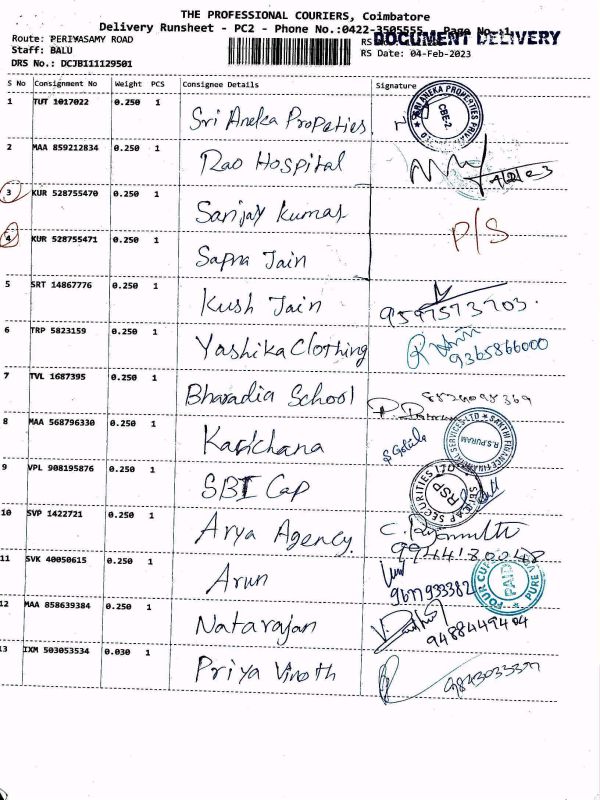 THE PROFESSIONAL COURIERS, Coimbatore
Delivery Runsheet - PC2 - Phone No.:0422-3505555 Page No.:1
DOCUMENT DELIVERY
Route: PERIYASAMY ROAD
Staff: BALU
RS Date: 04-Feb-2023
DRS No.: DCJB111129501
S No Consignment No Weight PCS Consignee Details Signature
1 TUT 1017022 0.250 1 Sri Aneka Propeties
SRI ANEKA PROPERTIES
CBE-2
2 MAA 859212834 0.250 1 Rao Hospital
4/2/23
3 KUR 528755470 0.250 1 Sanjay Kumar
4 KUR 528755471 0.250 1 Sapna Jain
P/S
5 SRT 14867776 0.250 1 Kush Jain
9597573703.
6 TRP 5823159 0.250 1 Yashika Clothing
9365866000
7 TVL 1687395 0.250 1 Bharadia School
8 MAA 568796330 0.250 1 Karkhana
SAKTHI FINANCE FINANCIAL SERVICES LTD
R.S.PURAM
9 VPL 908195876 0.250 1 SBI Cap
SECURITIES LTD
RSP
10 SVP 1422721 0.250 1 Arya Agency.
9944180048
11 SVK 40050615 0.250 1 Arun
9677933382
FOUR
PAID
PURE
12 MAA 858639384 0.250 1 Natarajan
9488449404
13 IXM 503053534 0.030 1 Priya Vinoth